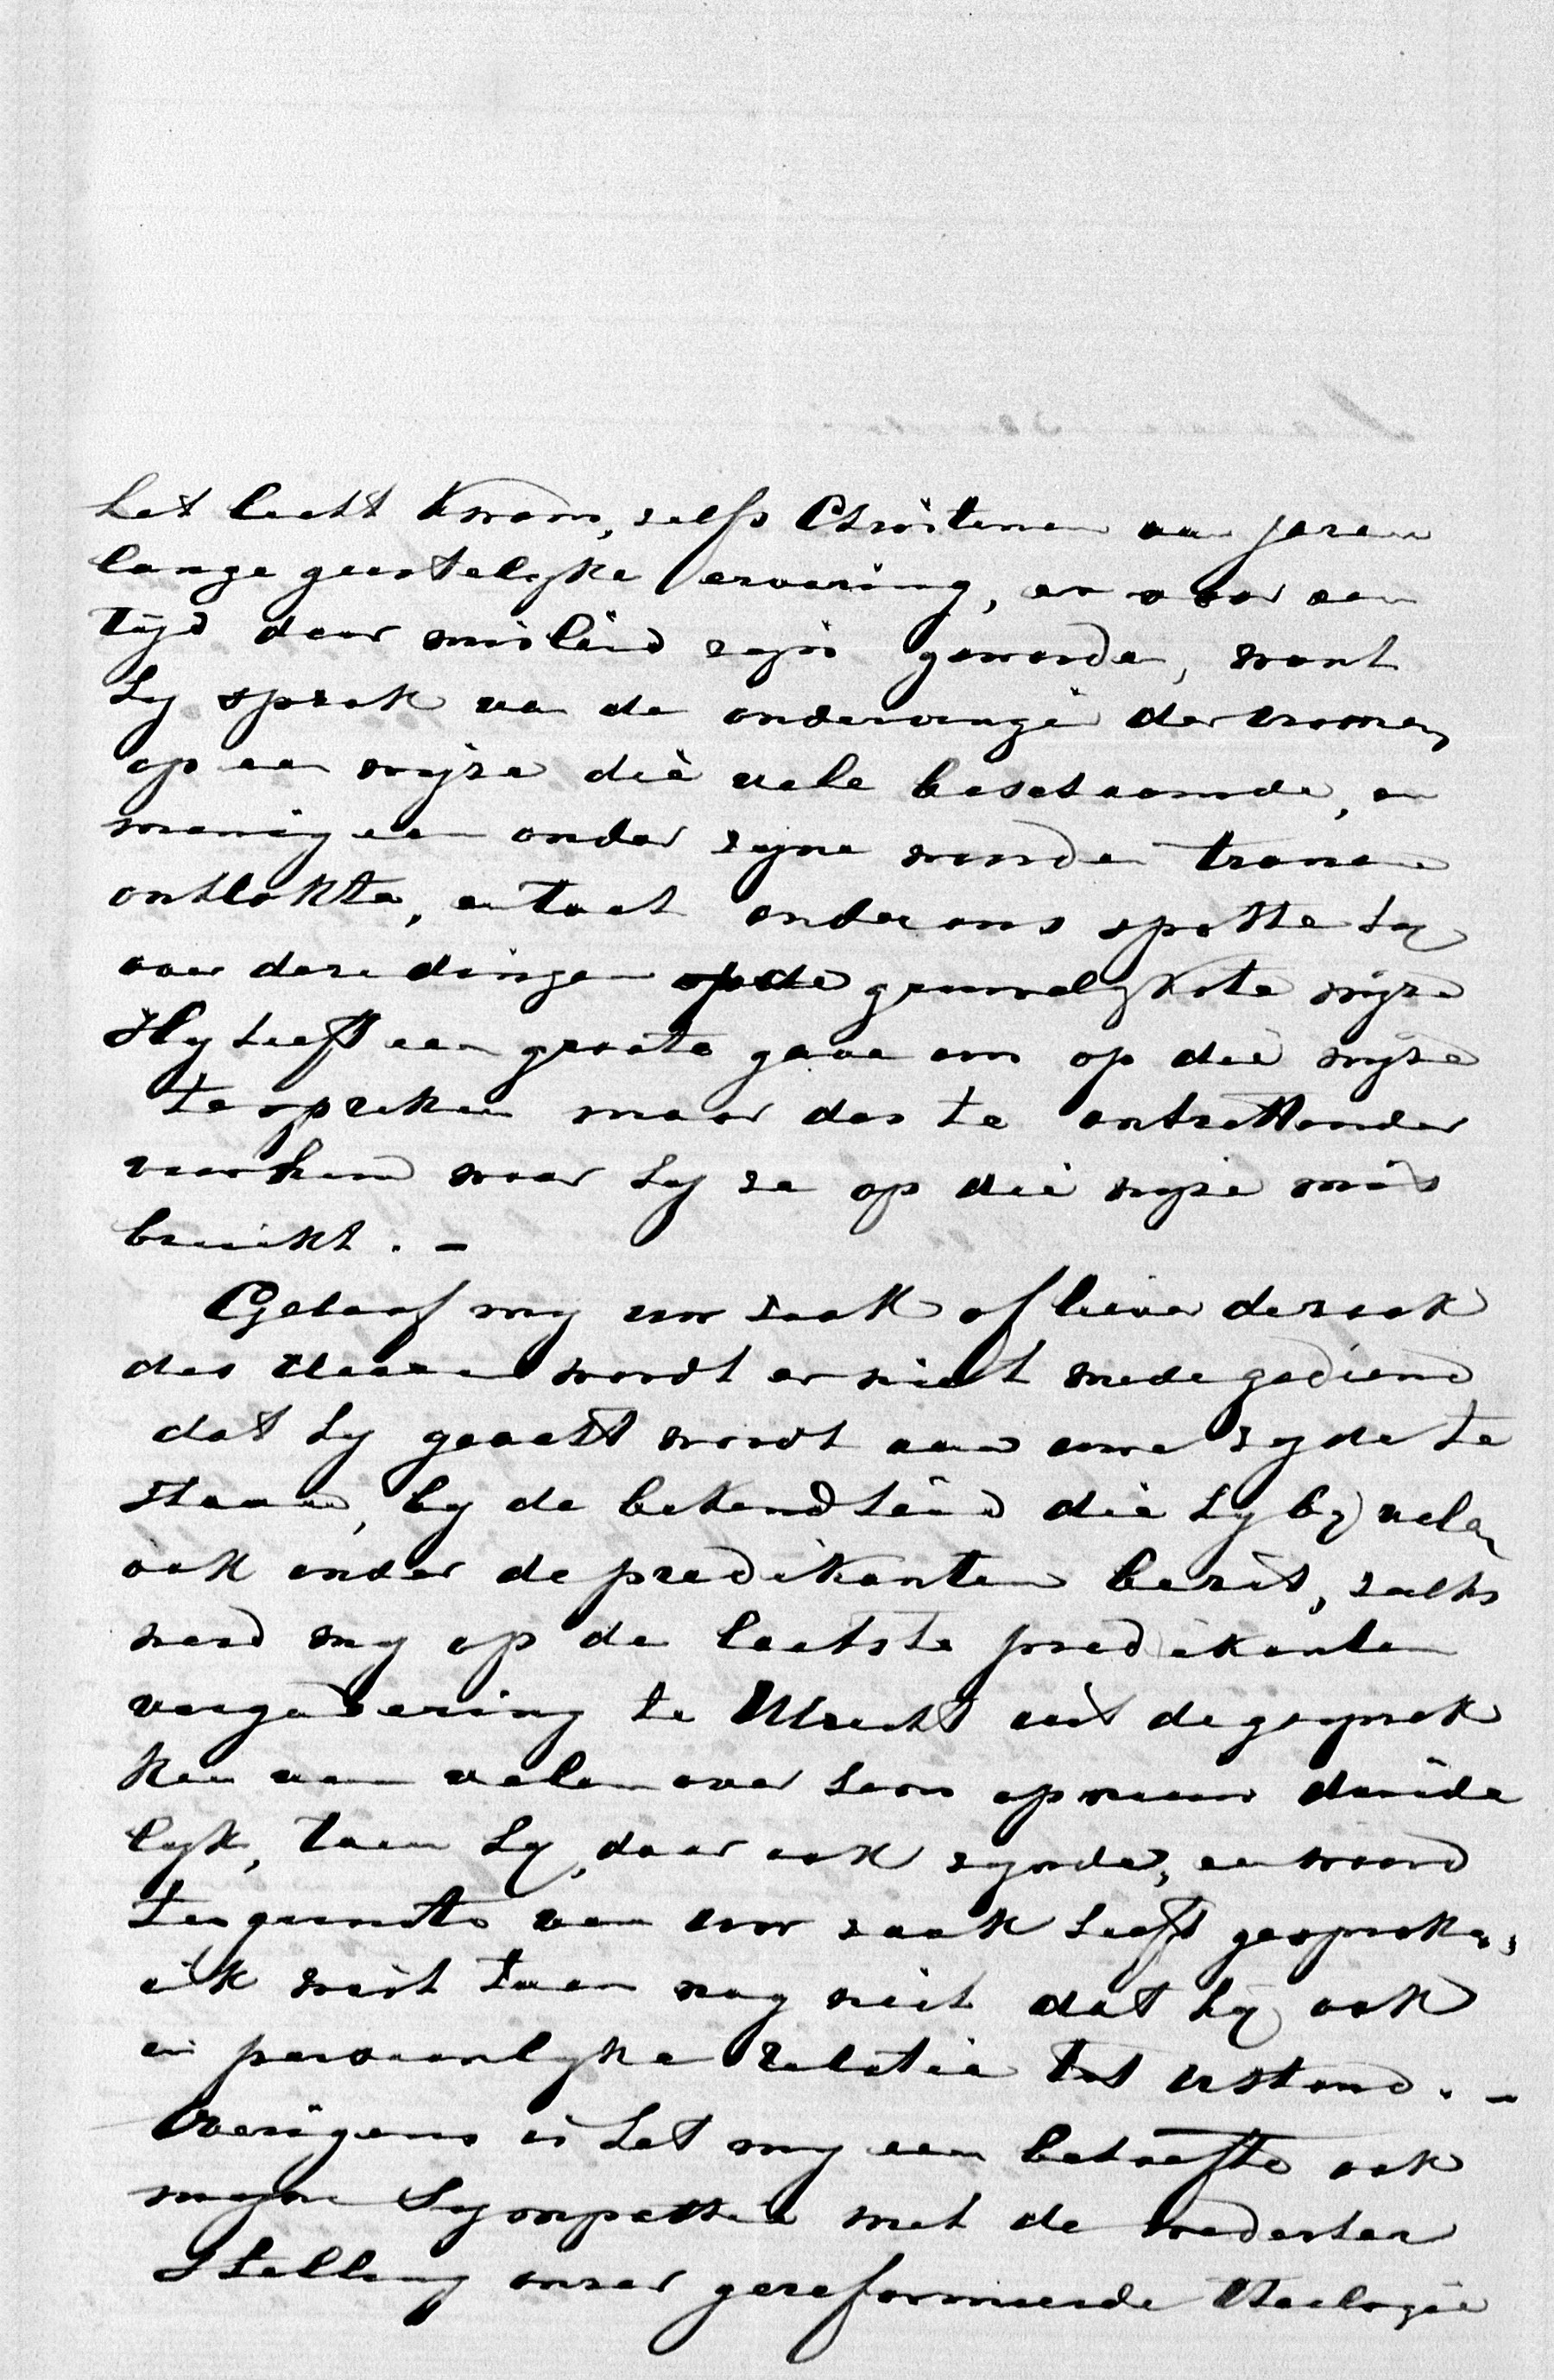 het licht kwam, zelfs Christenen van jaren
lange geestelyke ervaring, er voor een
tyd door misleid zyn geworden, want
hy sprak van de ondervinge der vromen
op een wyze die vele beschaamde, en
menigeen onder zyne woorden tranen
ontlokte, en toch onder ons spotte hy
over deze dingen op de gruwelykste wyze
Hy heeft een groote gave om op die wyze
te spreken maar des te ontzettender
voor hem waar hy ze op die wyze mis
bruikt. –
Geloof my uw zaak of liever de zaak
des Heeren wordt er niet mede gediend
dat hy geacht wordt aan uwe zyde te
staan, by de bekendheid die hy by velen
ook onder de predikanten bezit, zulks
werd my op de laatste predikanten
vergadering te Utrecht uit de gesprek
ken van velen over hem opnieuw duide
lyk, toen hy, daar ook zynde, een woord
ten gunste van uw zaak heeft gesproken,
ik wist toen nog niet dat hy ook
in persoonlyke relatie tot u stond. –
Overigens is het my een behoefte ook
myne Sympathie met de wederher
stelling onzer gereformeerde theologie